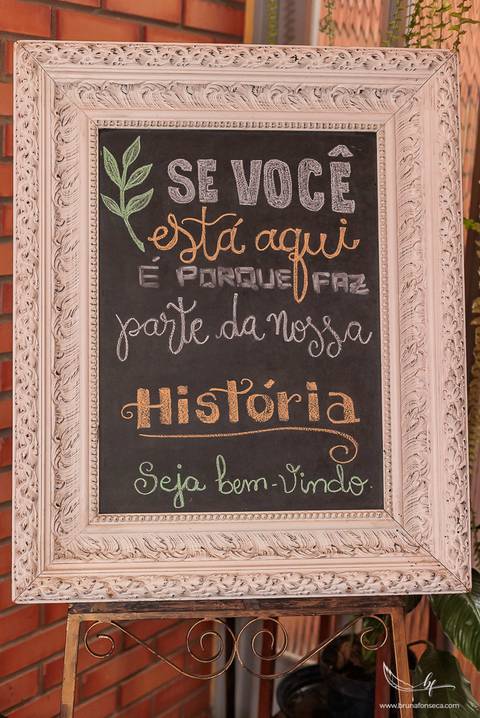 SE VOCÊ
está aqui
É PORQUE FAZ
parte da nossa
História
Seja bem-vindo.
bf
www.brunafonseca.com